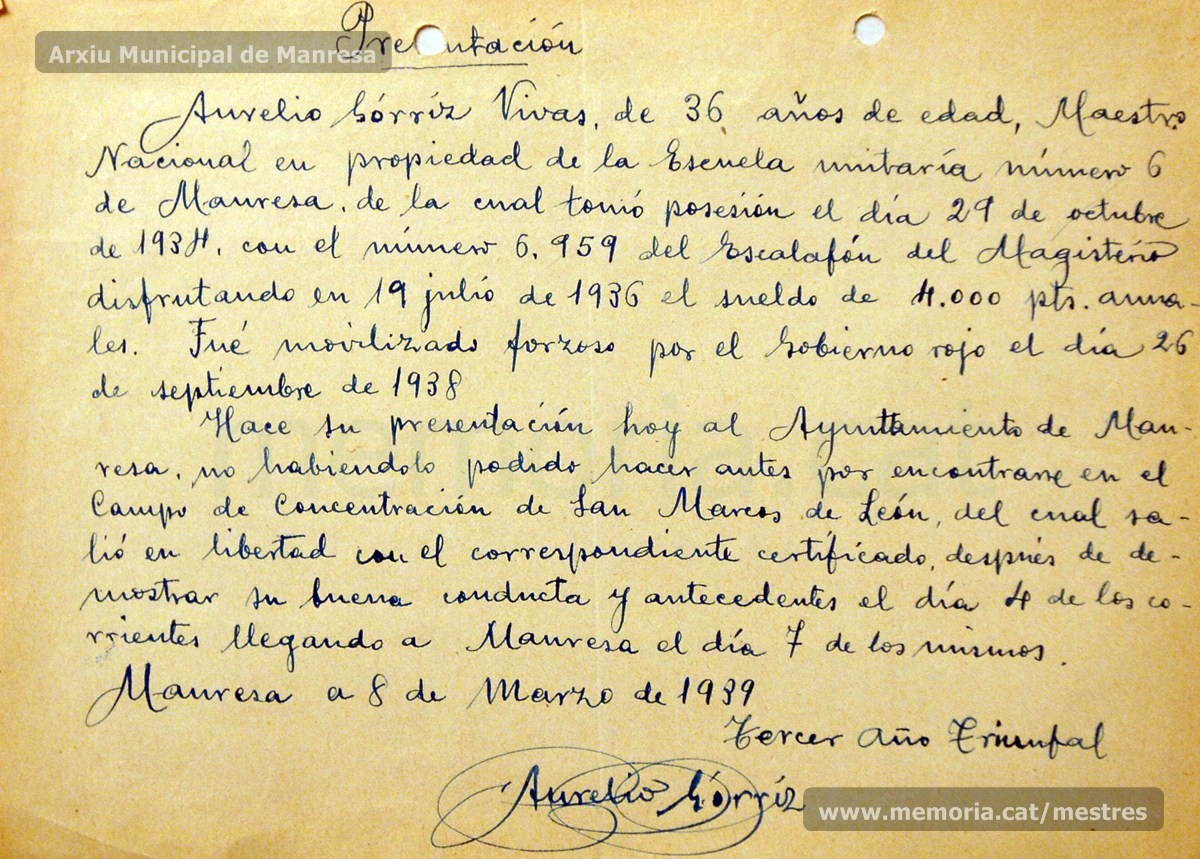 Presentación
Arxiu Municipal de Manresa
Aurelio Górríz Vivas, de 36 años de edad, Maestro
Nacional en propiedad de la Escuela unitaría número 6
de Manresa, de la cual tomó posesión el día 29 de octubre
de 1934, con el número 6.959 del Escalafón del Magisterio
disfrutando en 19 julio de 1936 el sueldo de 4.000 pts. anua-
les. Fué movilizado forzoso por el Gobierno rojo el día 26
de septiembre de 1938
Hace su presentación hoy al Ayuntamiento de Man-
resa, no habiéndolo podido hacer antes por encontrarse en el
Campo de Concentración de San Marcos de León, del cual sa-
lió en libertad con el correspondiente certificado, después de de-
mostrar su buena conducta y antecedentes el día 4 de los co-
rrientes llegando a Manresa el día 7 de los mismos.
Manresa a 8 de Marzo de 1939
Tercer Año Triunfal
Aurelio Górríz
www.memoria.cat/mestres